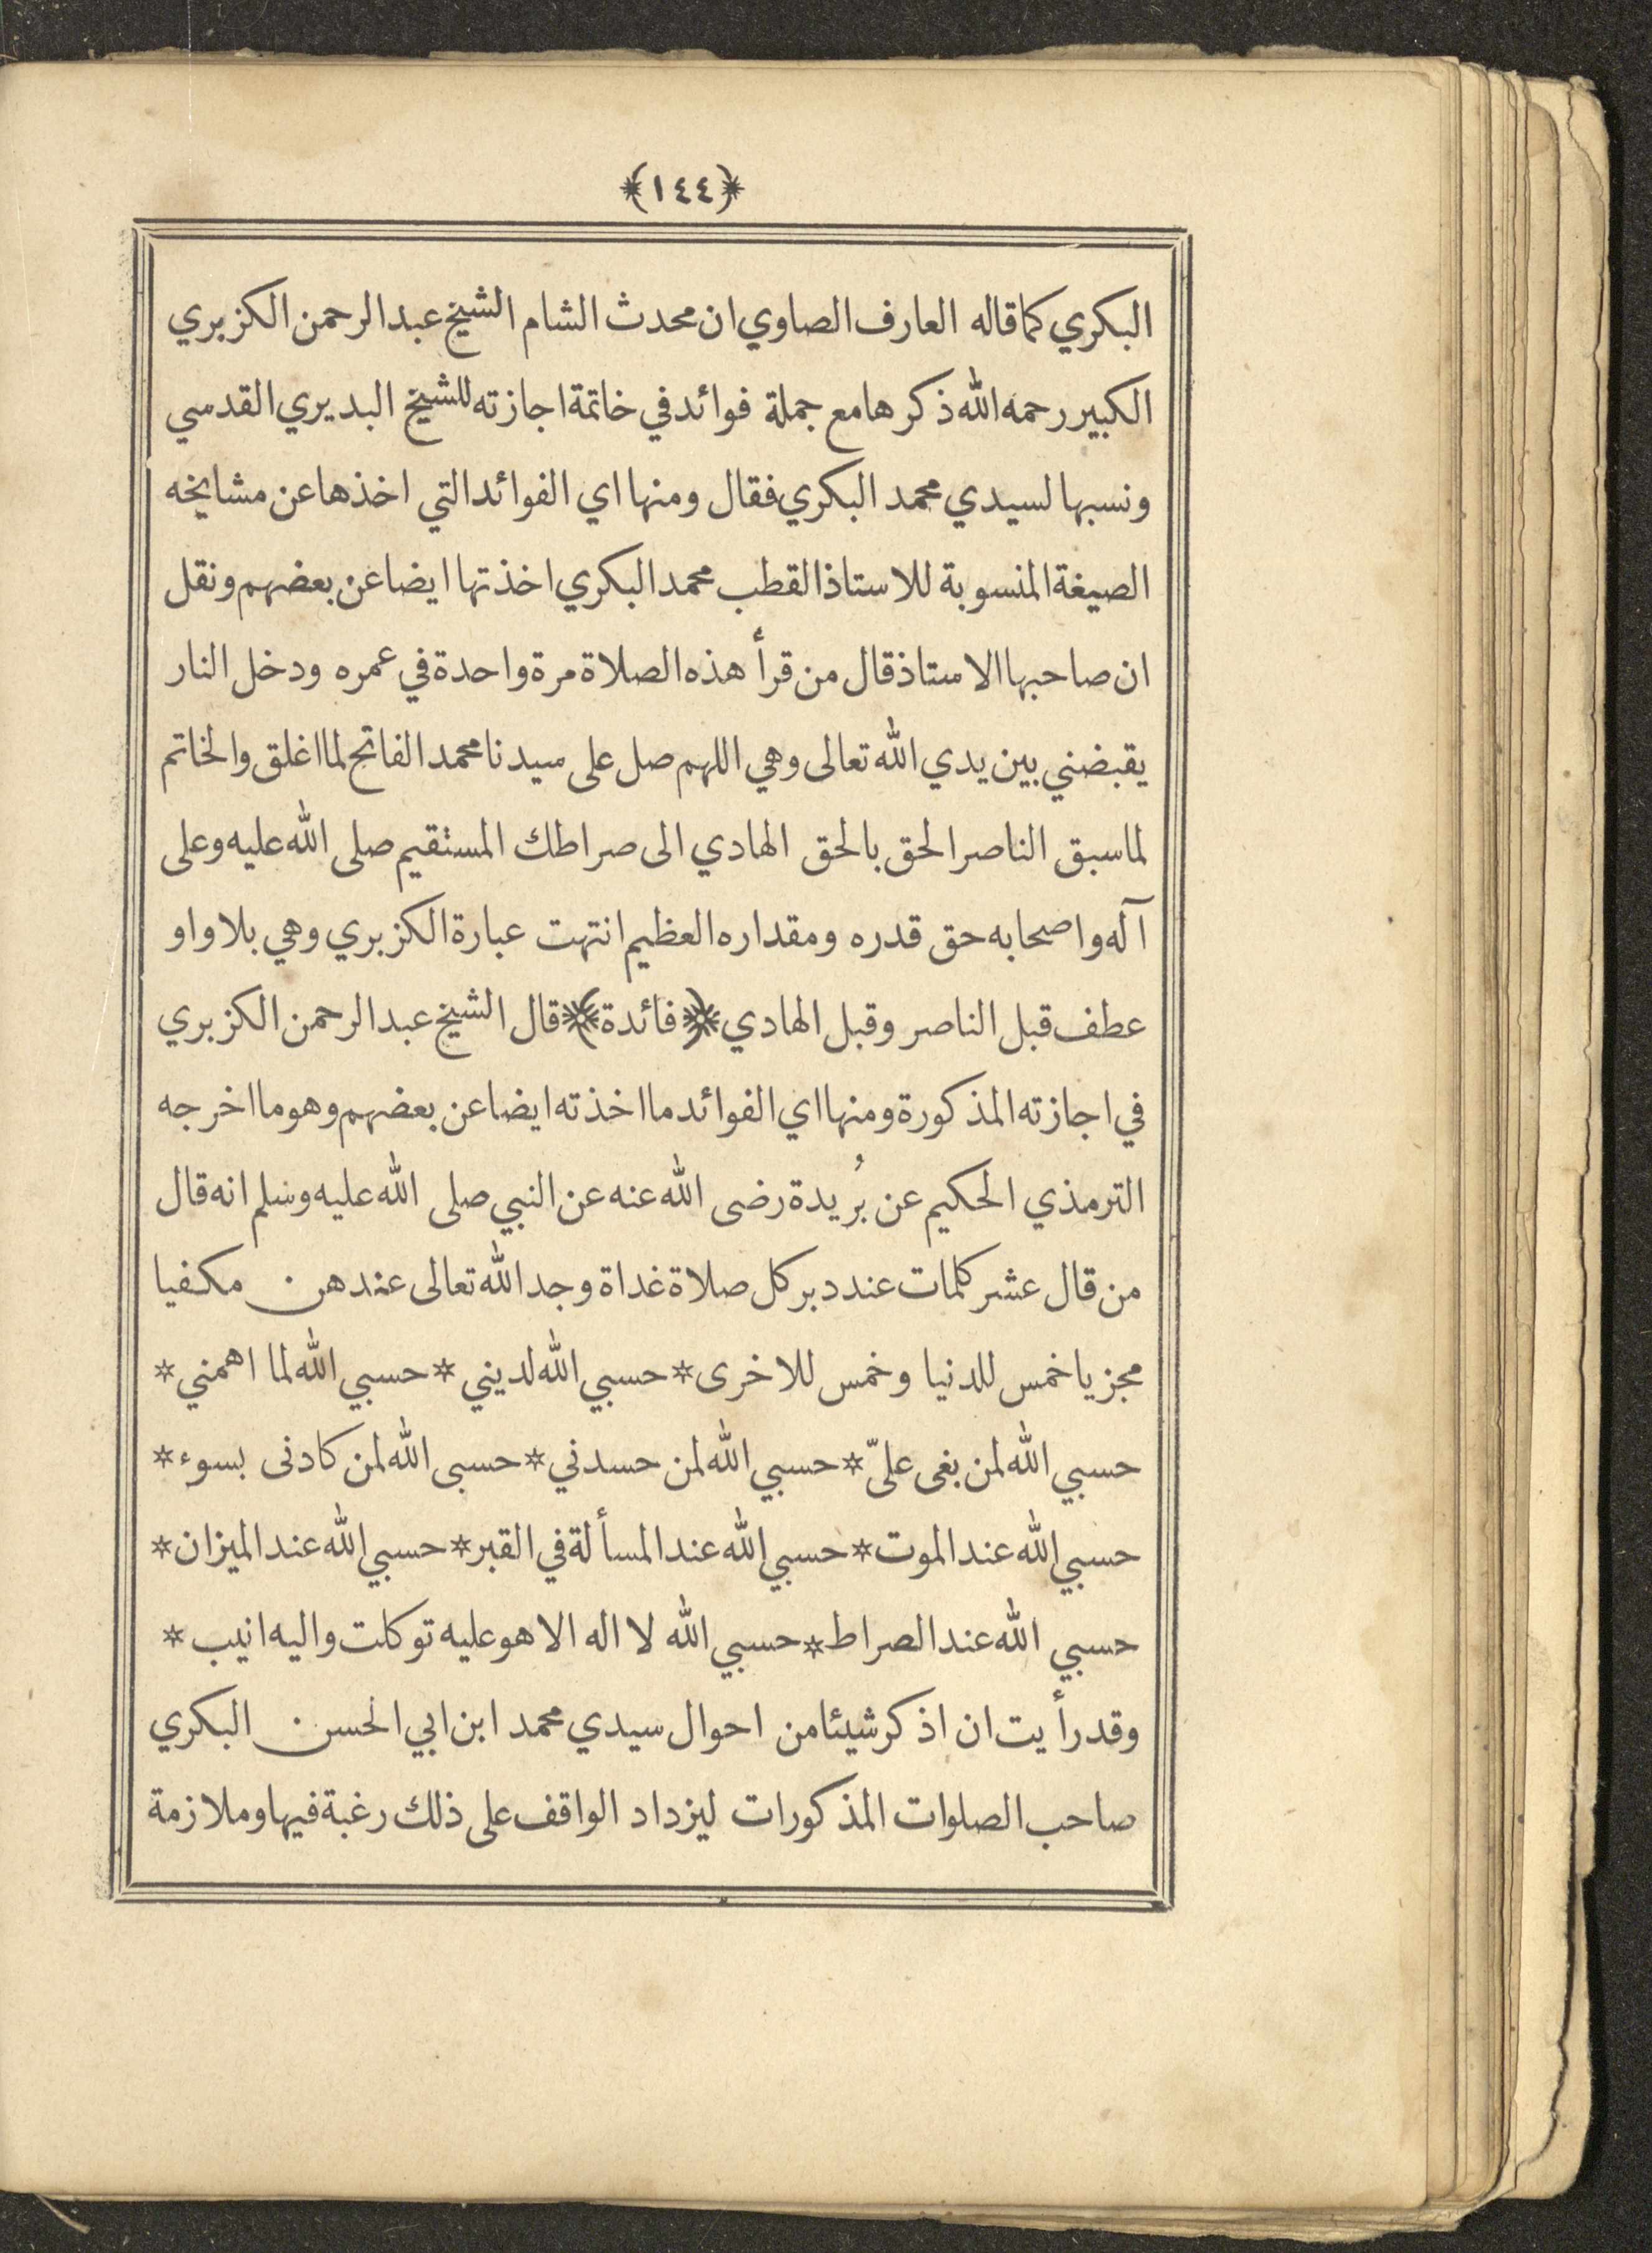 ﴿١٤٤﴾
البكري كما قاله العارف الصاوي ان محدث الشام الشيخ عبد الرحمن الكزبري
الكبير رحمه الله ذكرها مع جملة فوائد في خاتمة اجازته للشيخ البديري القدسي
ونسبها لسيدي محمد البكري فقال ومنها اي الفوائد التي اخذها عن مشايخه
الصيغة المنسوبة للاستاذ القطب محمد البكري اخذتها ايضا عن بعضهم ونقل
ان صاحبها الاستاذ قال من قرأ هذه الصلاة مرة واحدة في عمره ودخل النار
يقبضني بين يدي الله تعالى وهي اللهم صل على سيدنا محمد الفاتح لما اغلق والخاتم
لما سبق الناصر الحق بالحق الهادي الى صراطك المستقيم صلى الله عليه وعلى
آله واصحابه حق قدره ومقداره العظيم انتهت عبارة الكزبري وهي بلا واو
عطف قبل الناصر وقبل الهادي ﴿فائدة﴾ قال الشيخ عبد الرحمن الكزبري
في اجازته المذكورة ومنها اي الفوائد ما اخذته ايضا عن بعضهم وهو ما اخرجه
الترمذي الحكيم عن بُريدة رضى الله عنه عن النبي صلى الله عليه وسلم انه قال
من قال عشر كلمات عند دبر كل صلاة غداة وجد الله تعالى عندهن مكفيا
مجزيا خمس للدنيا وخمس للاخرى * حسبي الله لديني * حسبي الله لما اهمني *
حسبي الله لمن بغى عليّ * حسبي الله لمن حسدني * حسبى الله لمن كادنى بسوء *
حسبي الله عند الموت * حسبي الله عند المسألة في القبر * حسبي الله عند الميزان *
حسبي الله عند الصراط * حسبي الله لا اله الا هو عليه توكلت واليه انيب *
وقد رأيت ان اذكر شيئا من احوال سيدي محمد ابن ابي الحسن البكري
صاحب الصلوات المذكورات ليزداد الواقف على ذلك رغبة فيها وملازمة